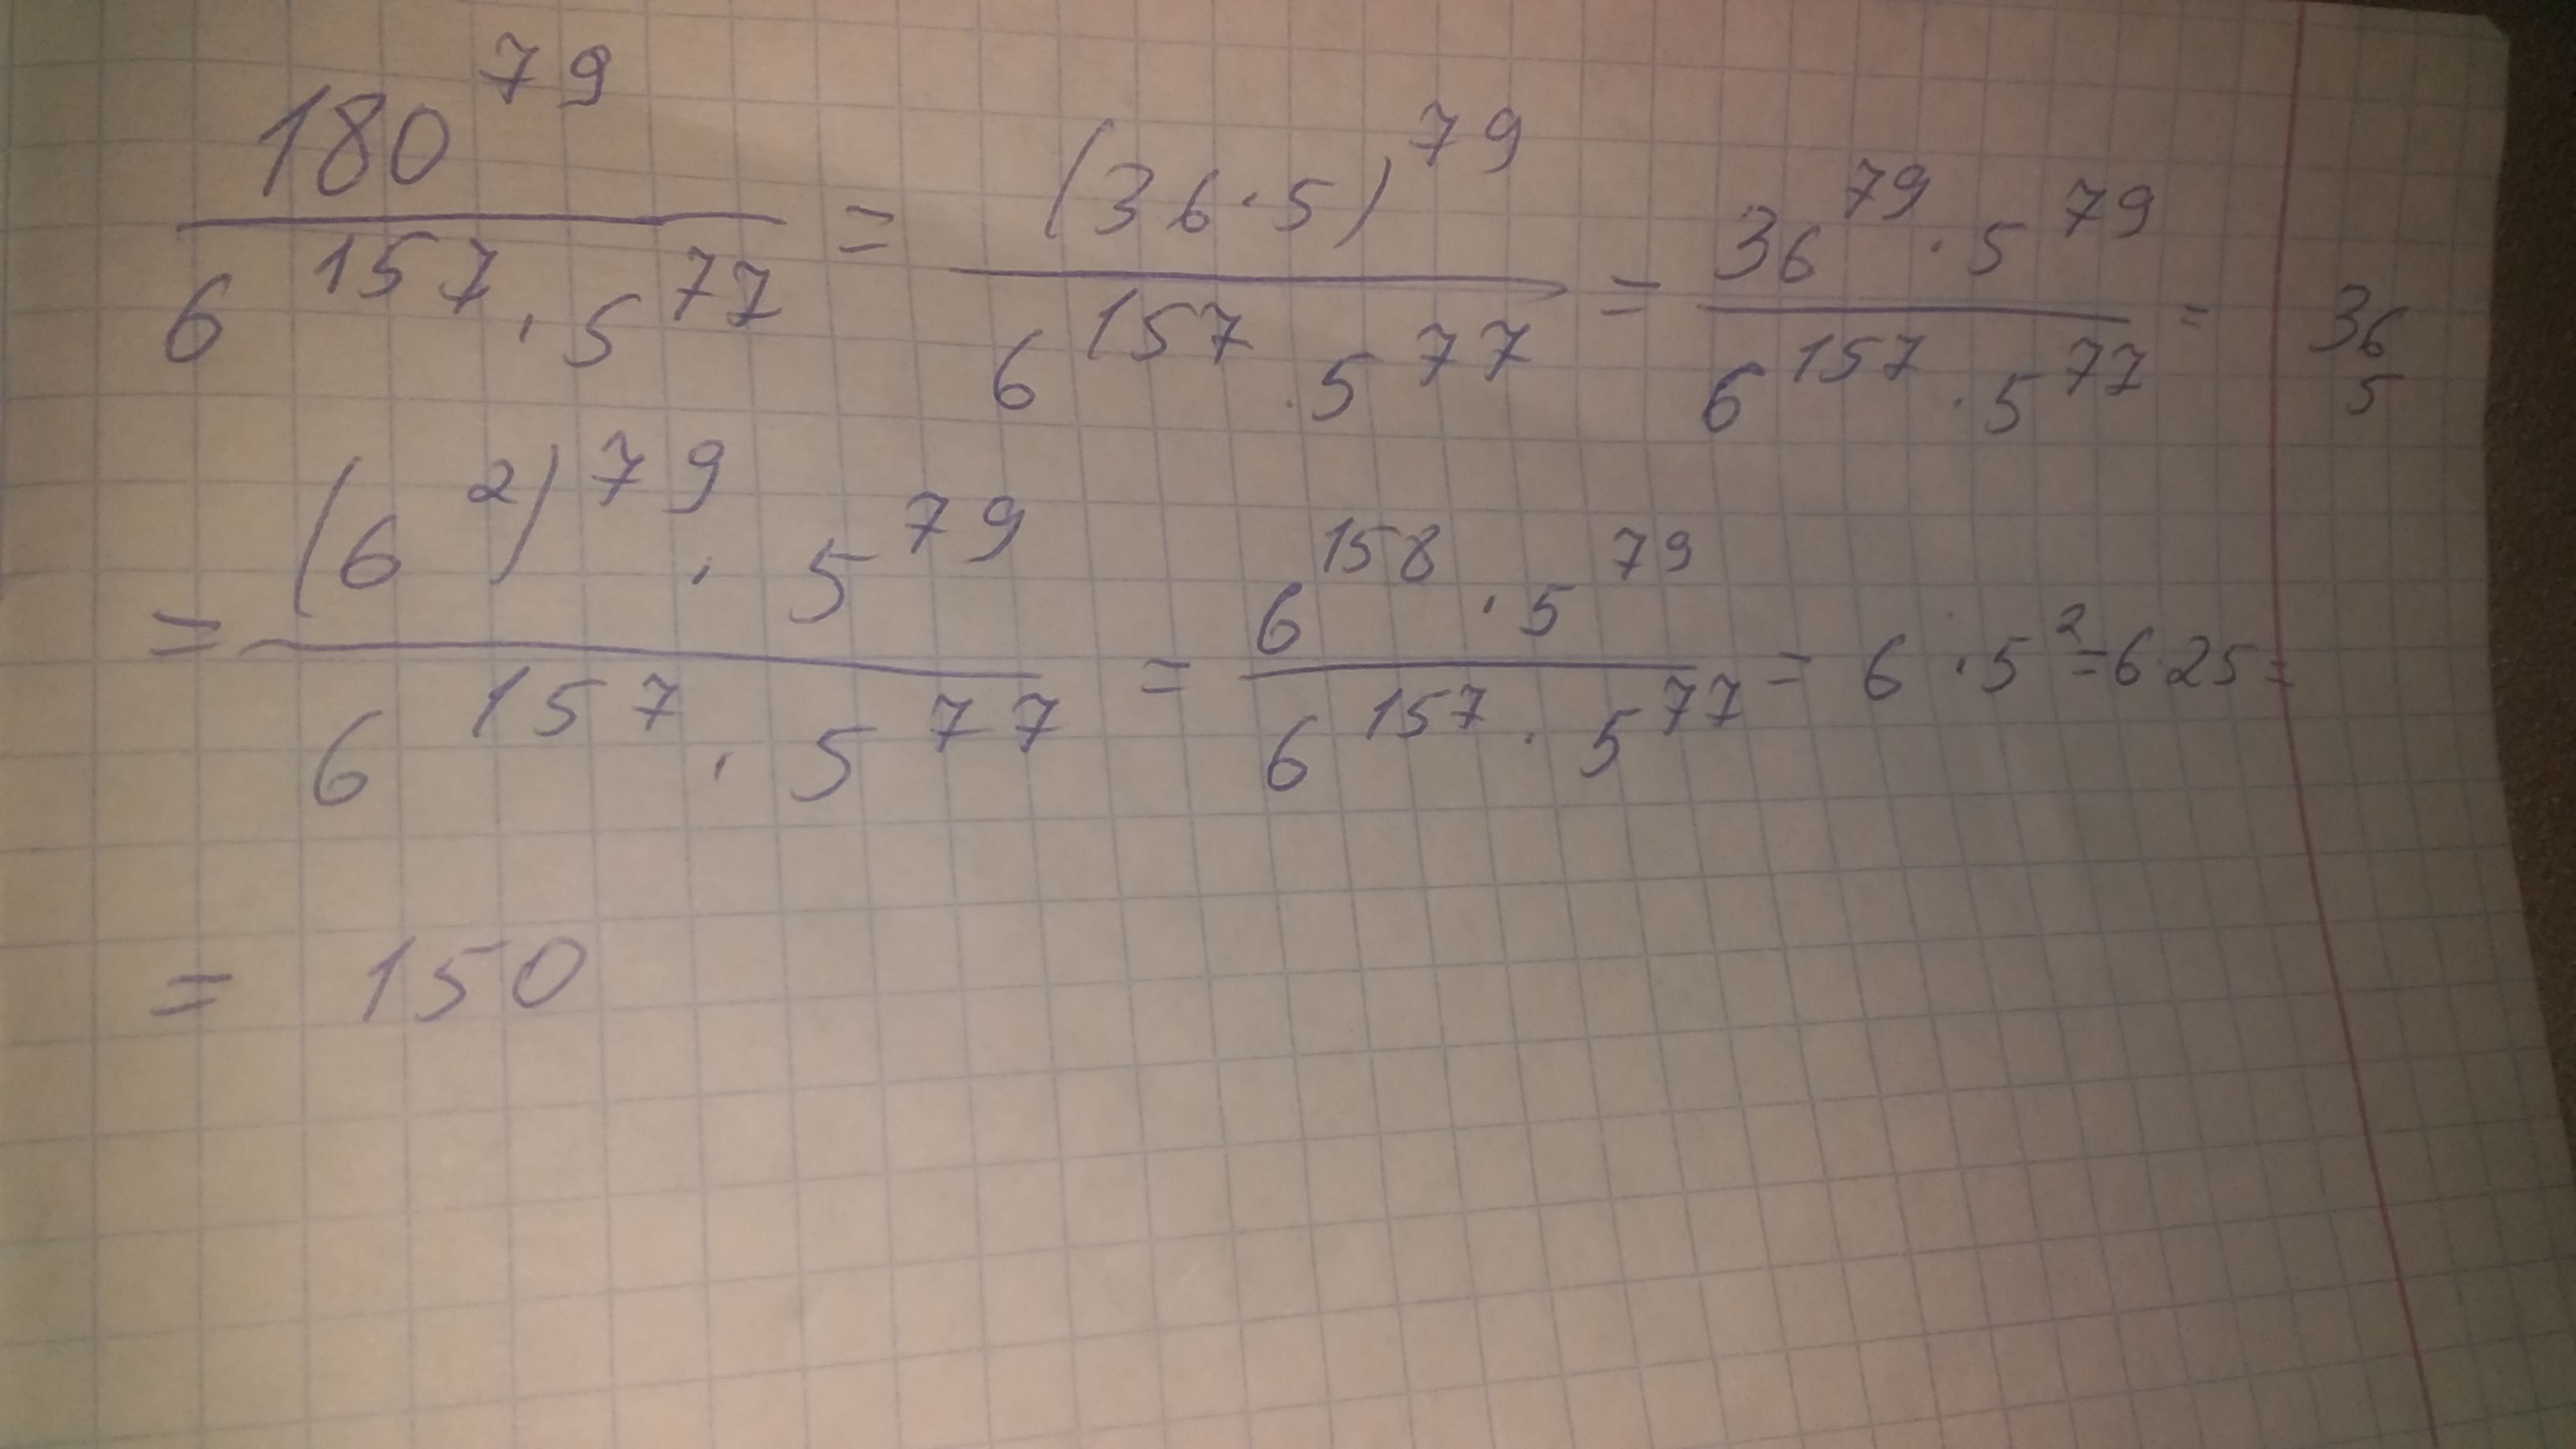 180^79 / (6^157 · 5^77) = (36·5)^79 / (6^157 · 5^77) = (36^79 · 5^79) / (6^157 · 5^77) = 36
5
= ((6^2)^79 · 5^79) / (6^157 · 5^77) = (6^158 · 5^79) / (6^157 · 5^77) = 6 · 5^2 = 6·25 =
= 150